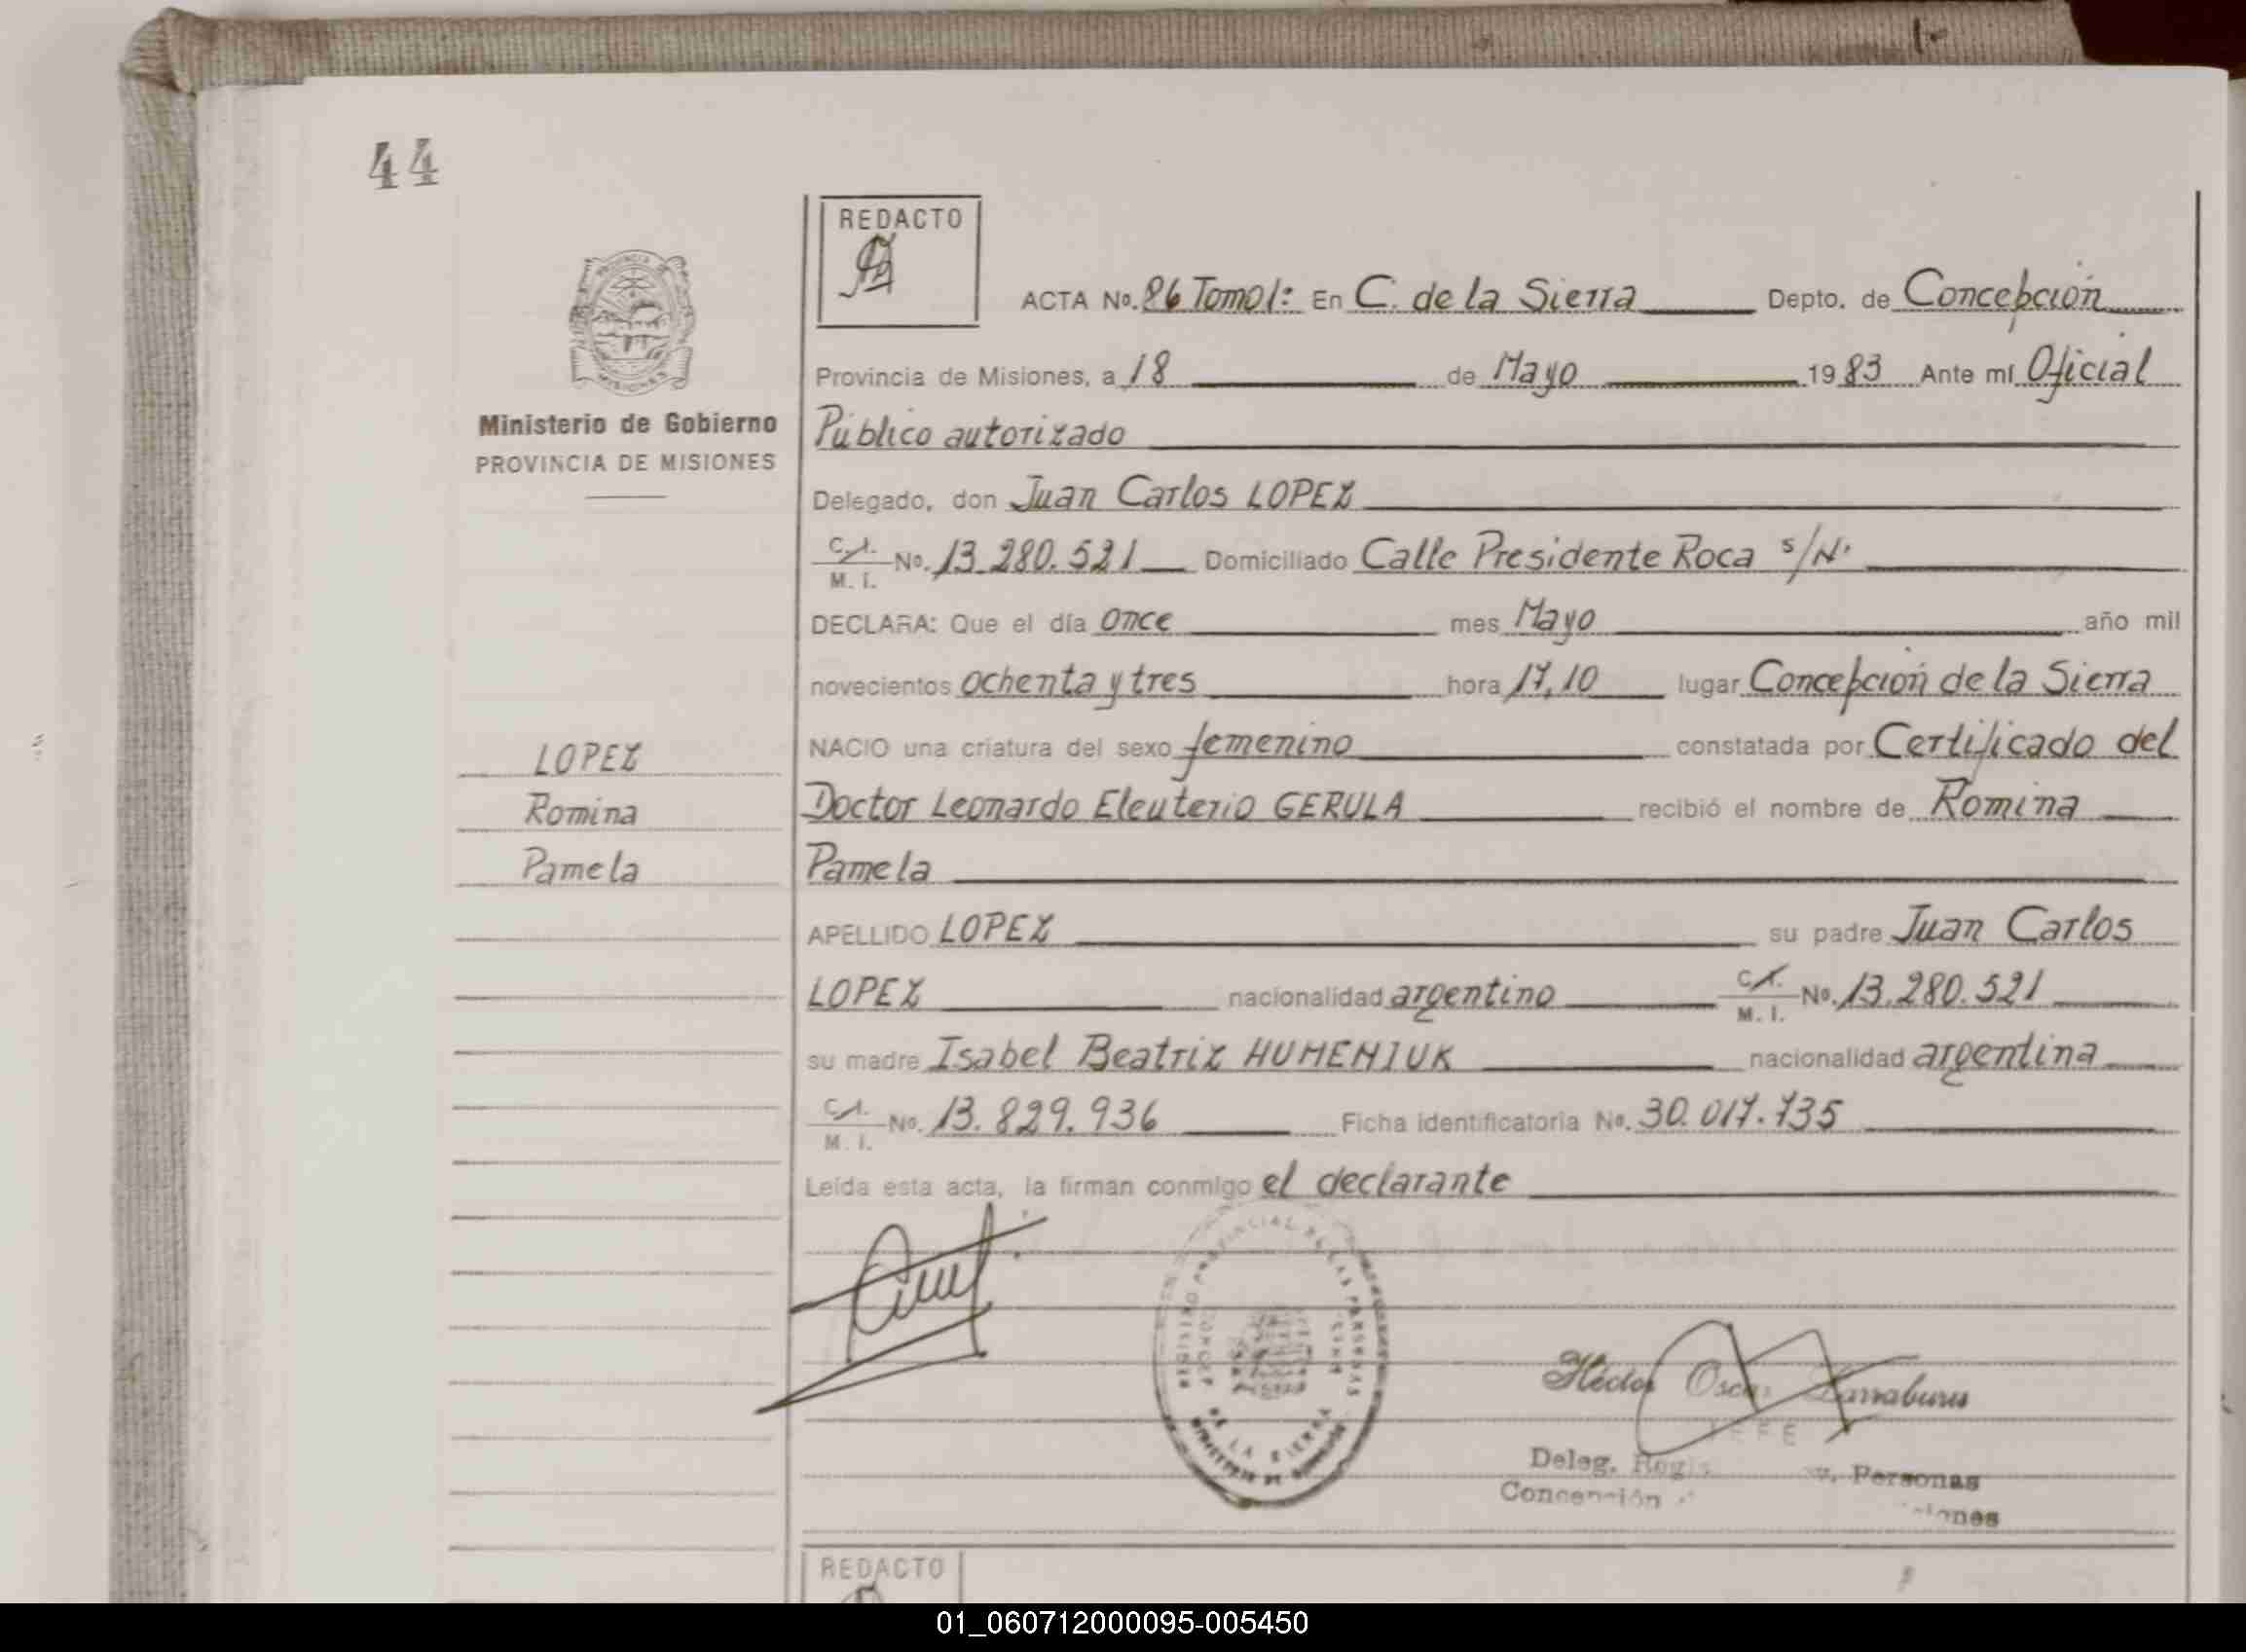 1-
44
REDACTO
ACTA No. 86 Tomo 1: En C. de la Sierra Depto. de Concepción
Provincia de Misiones, a 18 de Mayo 1983 Ante mí Oficial
Ministerio de Gobierno
PROVINCIA DE MISIONES
Público autorizado
Delegado, don Juan Carlos LOPEZ
C. I. M. I. No. 13.280.521 Domiciliado Calle Presidente Roca s/N°
DECLARA: Que el día once mes Mayo año mil
novecientos ochenta y tres hora 17,10 lugar Concepción de la Sierra
NACIO una criatura del sexo femenino constatada por Certificado del
LOPEZ
Romina
Pamela
Doctor Leonardo Eleuterio GERULA recibió el nombre de Romina
Pamela
APELLIDO LOPEZ su padre Juan Carlos
LOPEZ nacionalidad argentino C. I. M. I. No. 13.280.521
su madre Isabel Beatriz HUMENIUK nacionalidad argentina
C. I. M. I. No. 13.829.936 Ficha identificatoria No. 30.017.735
Leída esta acta, la firman conmigo el declarante
PROVINCIAL DE LAS PERSONAS
DE LA SIERRA
Héctor Oscar
JEFE
Deleg. Personas
Concepción
REDACTO
01_060712000095-005450